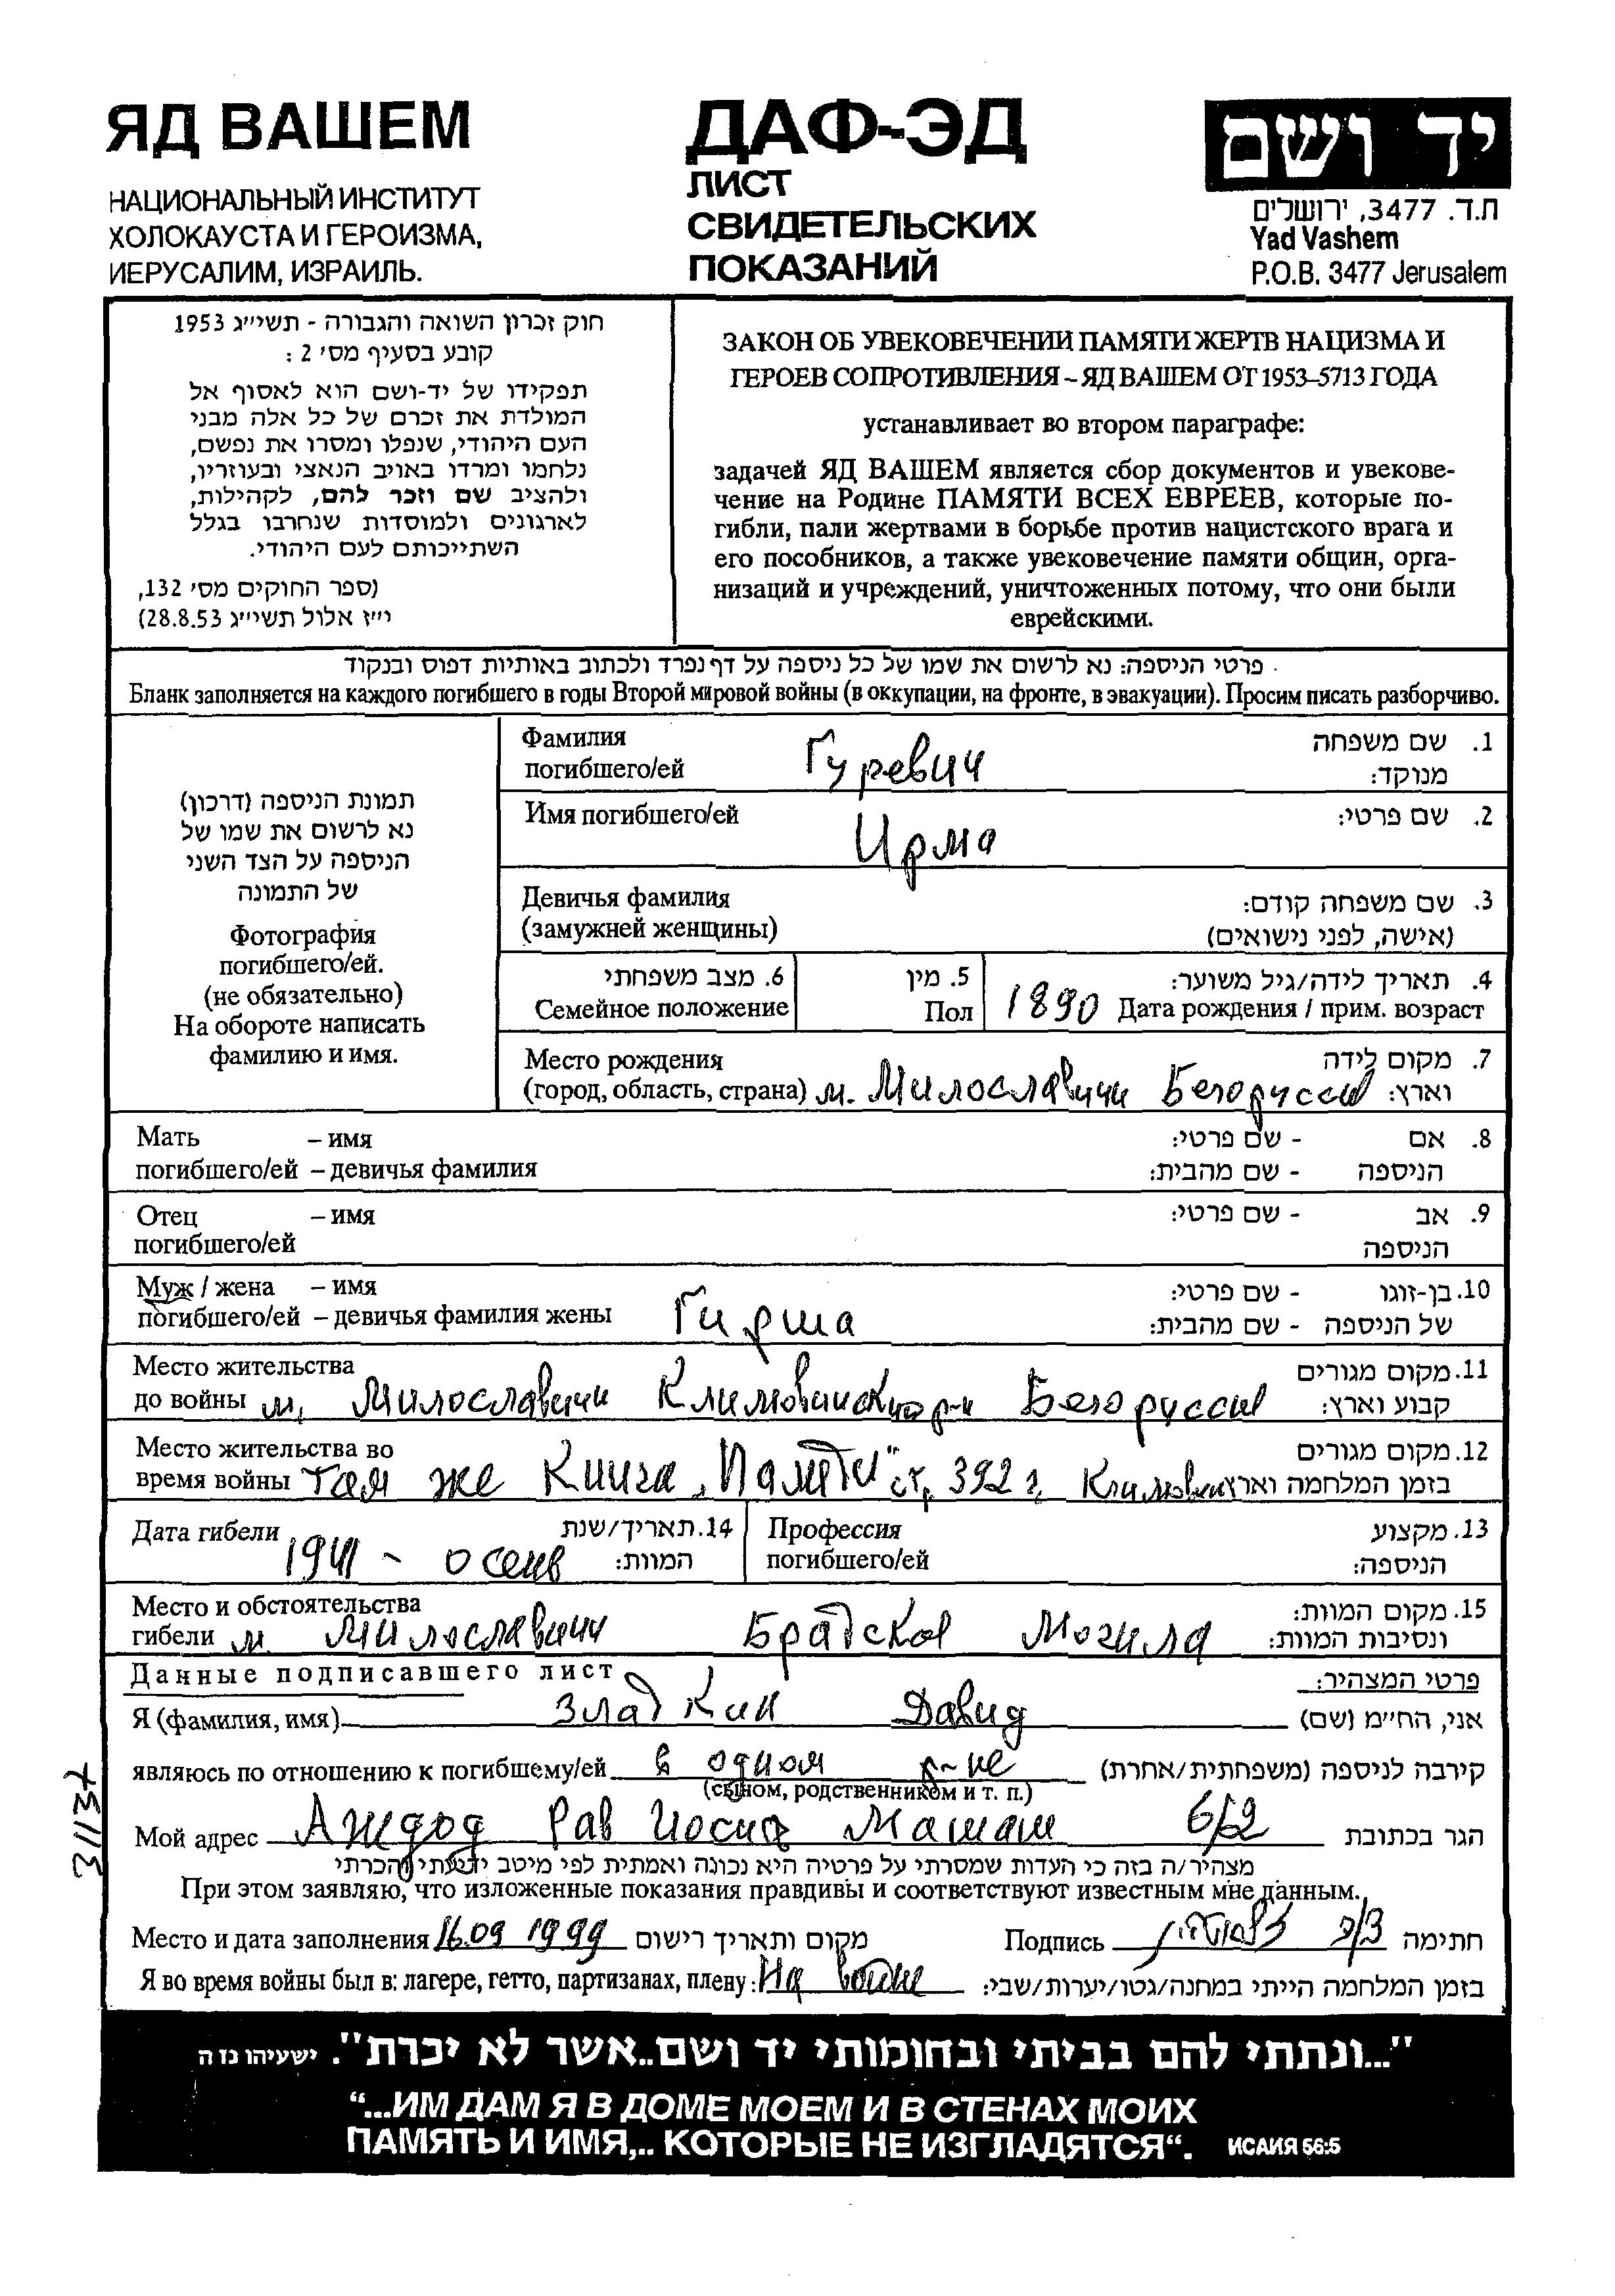 ЯД ВАШЕМ
НАЦИОНАЛЬНЫЙ ИНСТИТУТ
ХОЛОКАУСТА И ГЕРОИЗМА,
ИЕРУСАЛИМ, ИЗРАИЛЬ.
ДАФ-ЭД
ЛИСТ
СВИДЕТЕЛЬСКИХ
ПОКАЗАНИЙ
יד ושם
ת.ד. 3477, ירושלים
Yad Vashem
P.O.B. 3477 Jerusalem
חוק זכרון השואה והגבורה - תשי״ג 1953
קובע בסעיף מס׳ 2 :
תפקידו של יד-ושם הוא לאסוף אל
המולדת את זכרם של כל אלה מבני
העם היהודי, שנפלו ומסרו את נפשם,
נלחמו ומרדו באויב הנאצי ובעוזריו,
ולהציב שם וזכר להם, לקהילות,
לארגונים ולמוסדות שנחרבו בגלל
השתייכותם לעם היהודי.
(ספר החוקים מס׳ 132,
י״ז אלול תשי״ג 28.8.53)
ЗАКОН ОБ УВЕКОВЕЧЕНИИ ПАМЯТИ ЖЕРТВ НАЦИЗМА И
ГЕРОЕВ СОПРОТИВЛЕНИЯ – ЯД ВАШЕМ ОТ 1953–5713 ГОДА
устанавливает во втором параграфе:
задачей ЯД ВАШЕМ является сбор документов и увекове-
чение на Родине ПАМЯТИ ВСЕХ ЕВРЕЕВ, которые по-
гибли, пали жертвами в борьбе против нацистского врага и
его пособников, а также увековечение памяти общин, орга-
низаций и учреждений, уничтоженных потому, что они были
еврейскими.
פרטי הניספה: נא לרשום את שמו של כל ניספה על דף נפרד ולכתוב באותיות דפוס ובנקוד
Бланк заполняется на каждого погибшего в годы Второй мировой войны (в оккупации, на фронте, в эвакуации). Просим писать разборчиво.
תמונת הניספה (דרכון)
נא לרשום את שמו של
הניספה על הצד השני
של התמונה
Фотография
погибшего/ей.
(не обязательно)
На обороте написать
фамилию и имя.
Фамилия 1. שם משפחה
погибшего/ей Гуревич מנוקד:
Имя погибшего/ей Ирма 2. שם פרטי:
Девичья фамилия 3. שם משפחה קודם:
(замужней женщины) (אישה, לפני נישואים)
6. מצב משפחתי 5. מין 4. תאריך לידה/גיל משוער:
Семейное положение Пол 1890 Дата рождения / прим. возраст
Место рождения 7. מקום לידה
(город, область, страна) м. Милославичи Белоруссия וארץ:
Мать – имя 8. אם - שם פרטי:
погибшего/ей – девичья фамилия הניספה - שם מהבית:
Отец – имя 9. אב - שם פרטי:
погибшего/ей הניספה
Муж / жена – имя 10. בן-זוגו - שם פרטי:
погибшего/ей – девичья фамилия жены Гирша של הניספה - שם מהבית:
Место жительства 11. מקום מגורים
до войны м. Милославичи р-н Белоруссия קבוע וארץ:
Место жительства во 12. מקום מגורים
время войны там же Книга „Памяти" ст, 392 г, בזמן המלחמה וארץ
Дата гибели 1941 - осень 14. תאריך/שנת המוות:
Профессия 13. מקצוע
погибшего/ей הניספה:
Место и обстоятельства 15. מקום המוות:
гибели м. Милославичи Братская Могила ונסיבות המוות:
Данные подписавшего лист פרטי המצהיר:
Я (фамилия, имя) Златкин Давид אני, החי״מ (שם)
являюсь по отношению к погибшему/ей в одном р-не קירבה לניספה (משפחתית/אחרת)
(сыном, родственником и т. п.)
Мой адрес Аждод Рав Иосиф Машаш 6/2 הגר בכתובת
מצהיר/ה בזה כי העדות שמסרתי על פרטיה היא נכונה ואמתית לפי מיטב ידיעתי והכרתי
При этом заявляю, что изложенные показания правдивы и соответствуют известным мне данным.
Место и дата заполнения 16.09 1999 מקום ותאריך רישום Подпись חתימה
Я во время войны был в: лагере, гетто, партизанах, плену: На войне בזמן המלחמה הייתי במחנה/גטו/יערות/שבי:
"...ונתתי להם בביתי ובחומותי יד ושם..אשר לא יכרת". ישעיהו נז ה
“...ИМ ДАМ Я В ДОМЕ МОЕМ И В СТЕНАХ МОИХ
ПАМЯТЬ И ИМЯ,.. КОТОРЫЕ НЕ ИЗГЛАДЯТСЯ“. ИСАИЯ 56:5